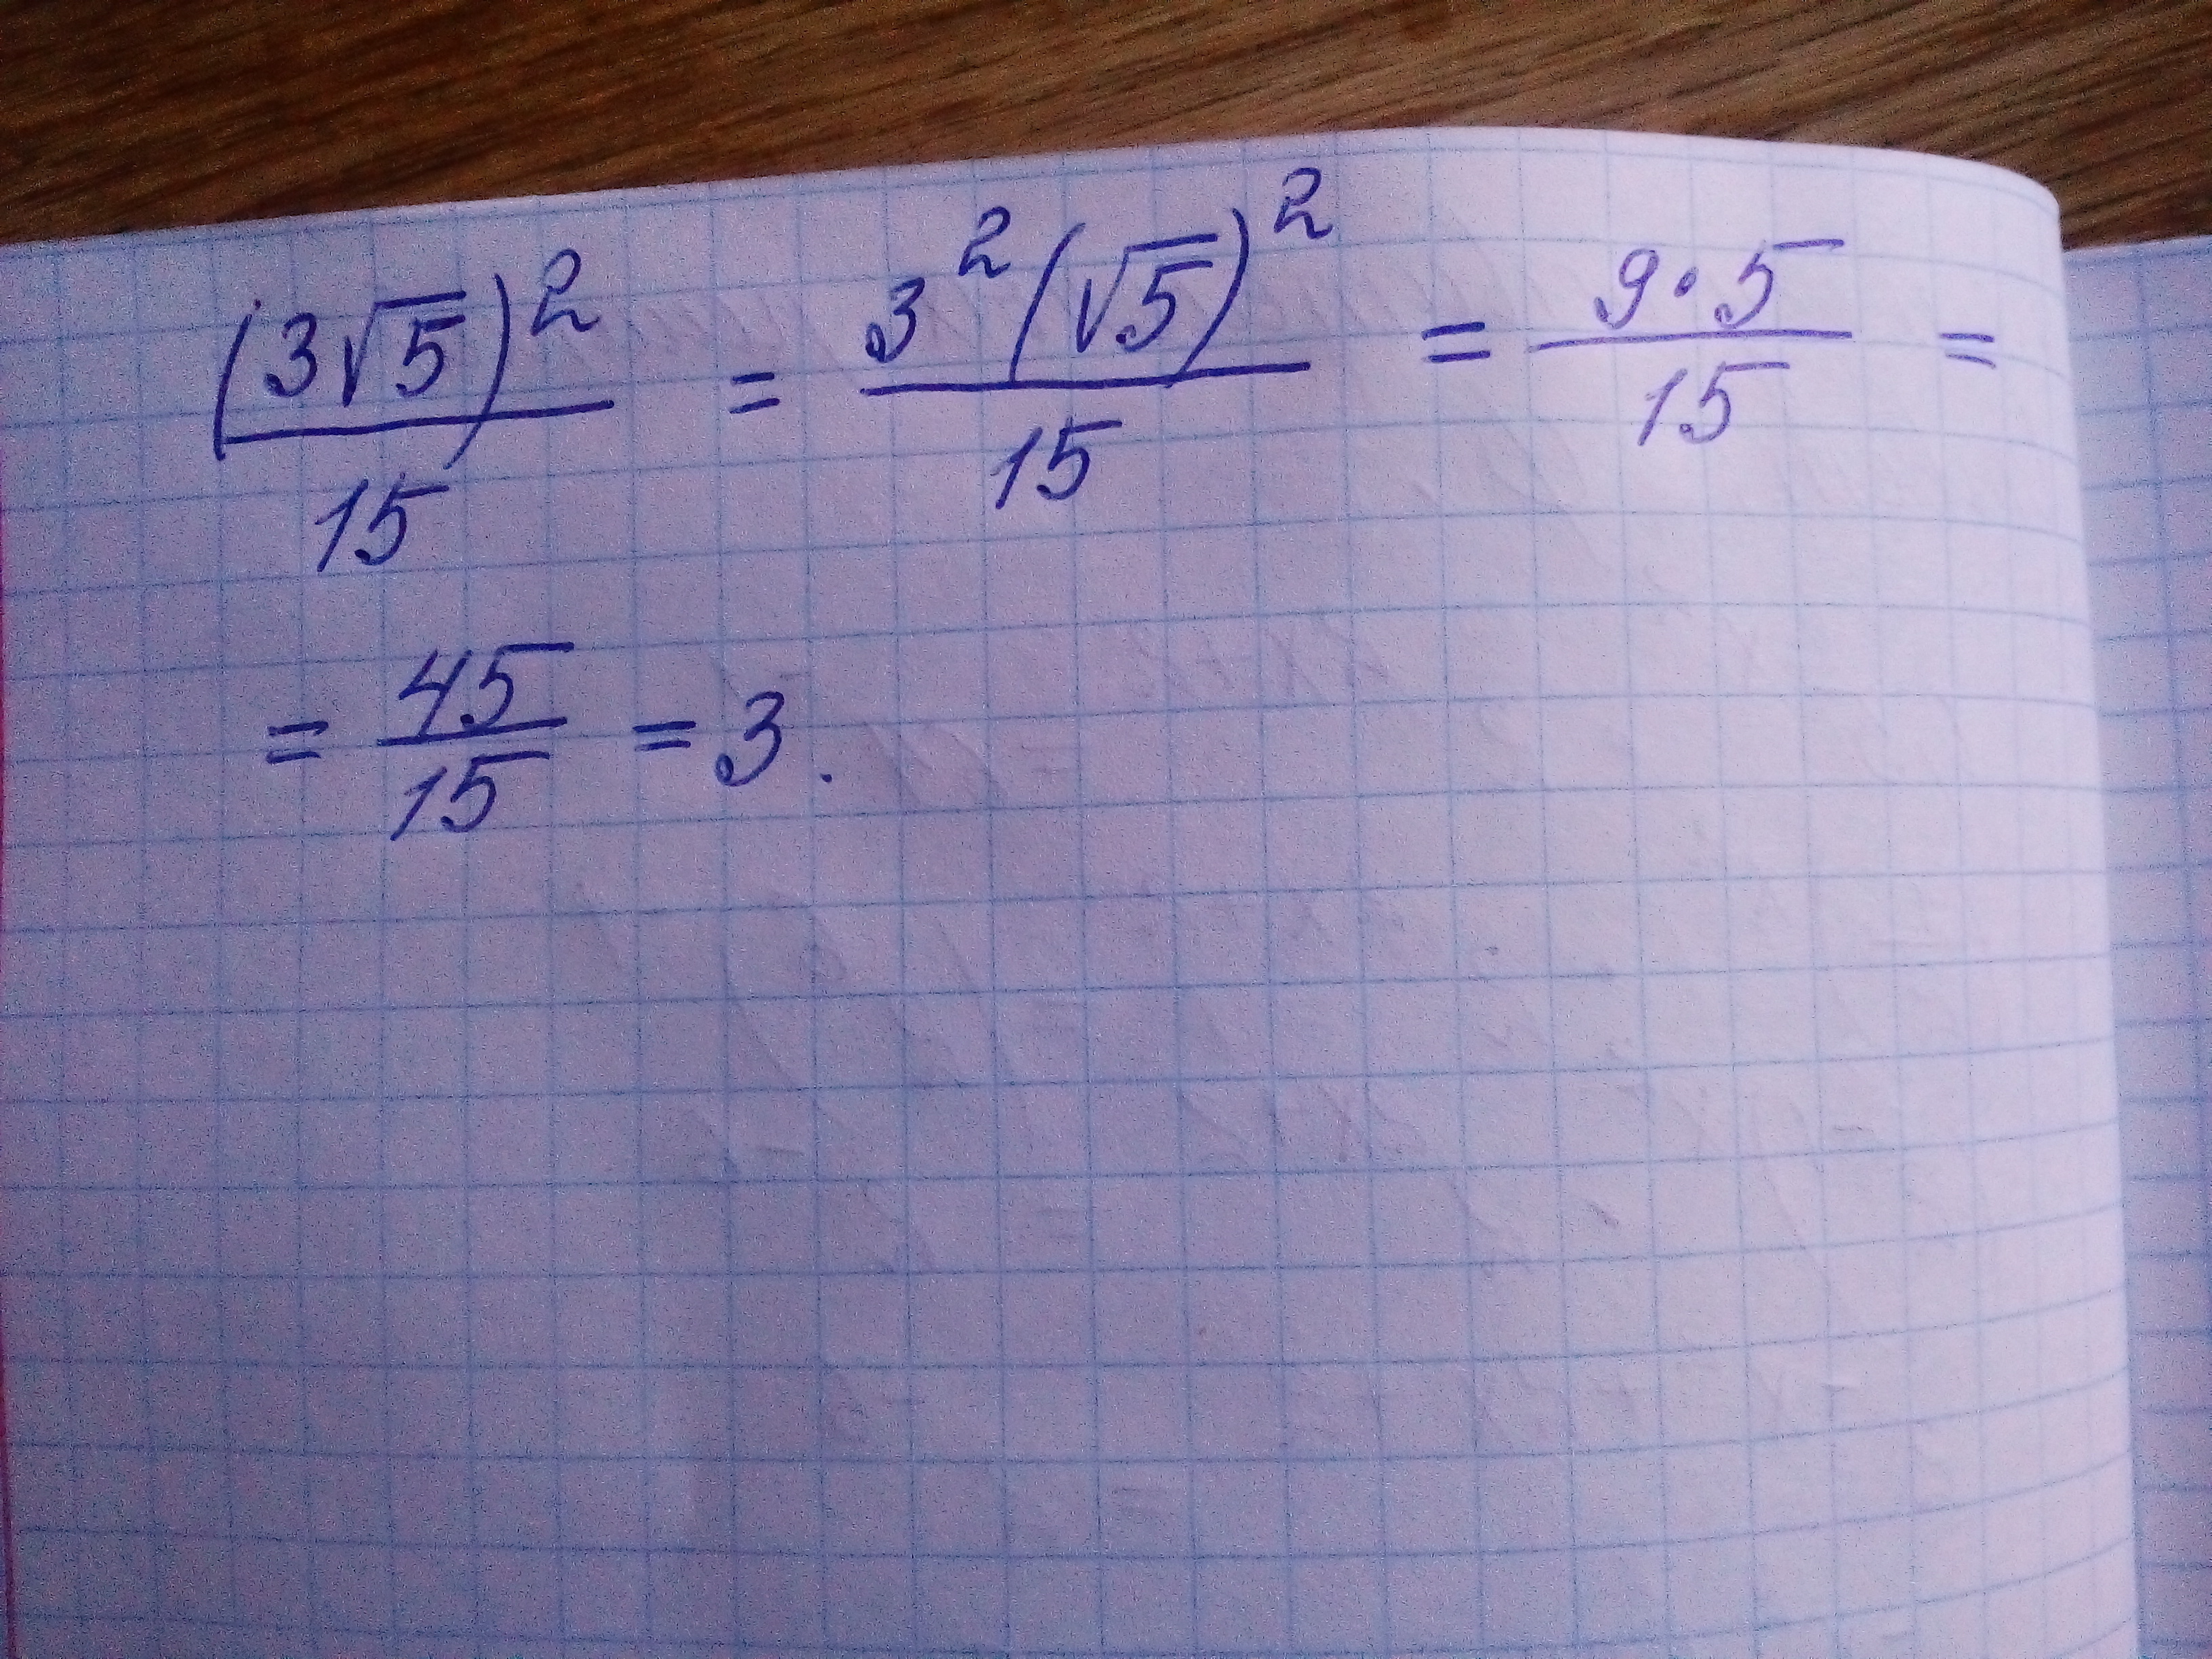 (3√5)²/15 = 3²(√5)²/15 = 9·5/15 =
= 45/15 = 3.